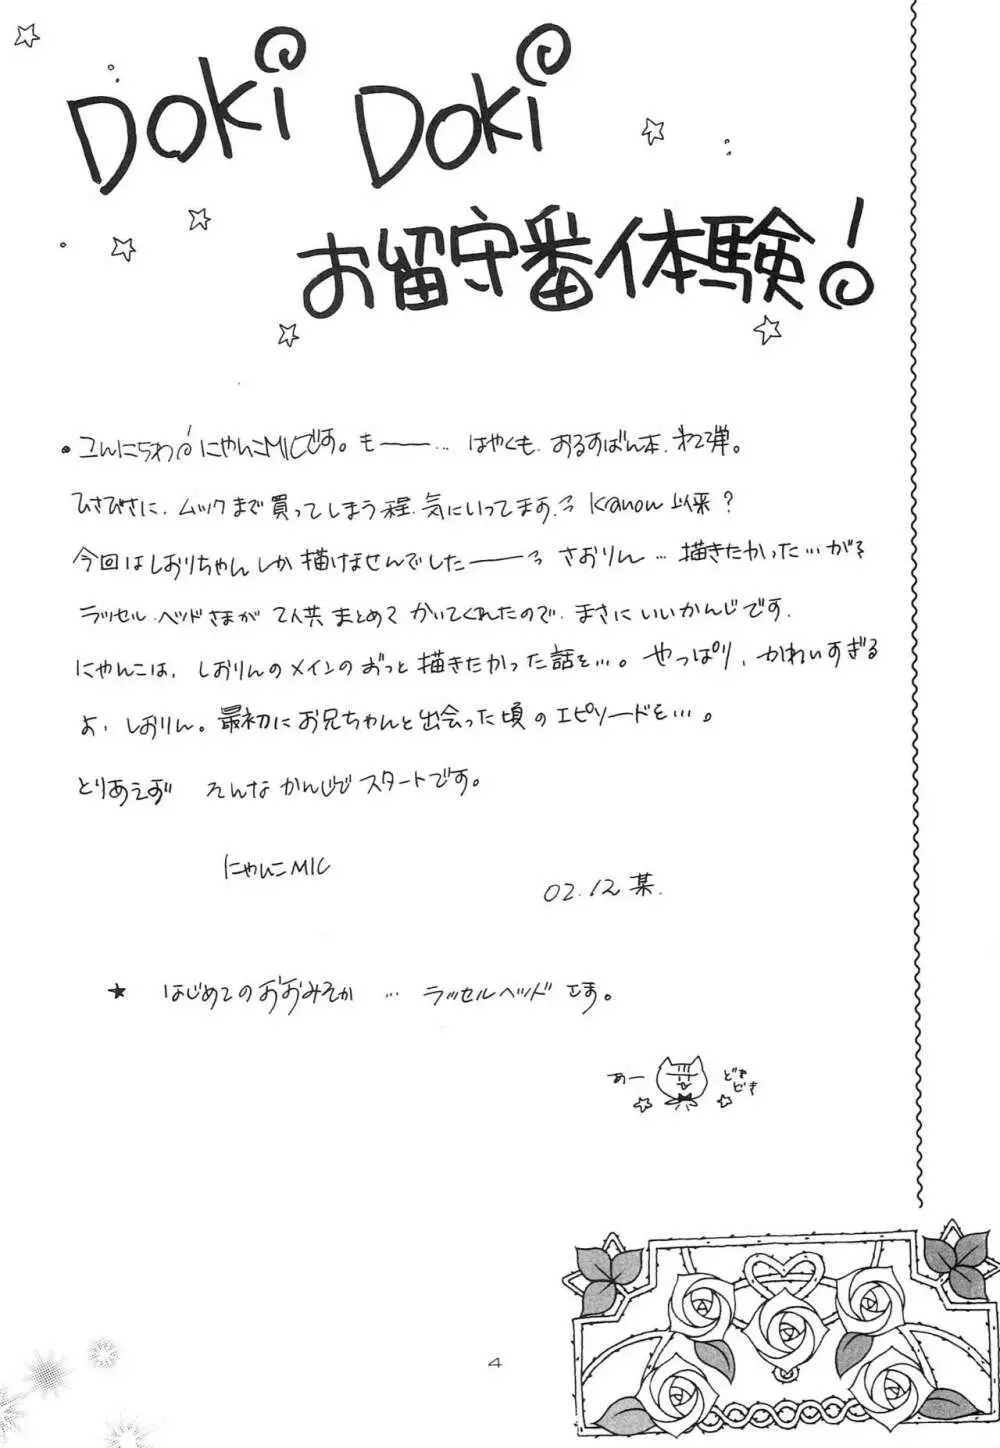 DOKi DOKi
お留守番体験!
• こんにちわ! にゃんこMICです。もーー… はやくも、おるすばん本、第2弾。
ひさびさに、ムックまで買ってしまう程、気にいってます。っ Kanon以来?
今回はしおりちゃんしか描けませんでしたーーっ さおりん…描きたかった…が
ラッセル・ヘッドさまが 2人共 まとめて かいてくれたので、まさにいいかんじです。
にゃんこは、しおりんのメインの ずっと描きたかった話を…。やっぱり、かわいすぎる
よ、しおりん。最初にお兄ちゃんと出会った頃のエピソードを…。
とりあえず そんな かんじで スタートです。
にゃんこMIC
02.12 某.
★ はじめてのおおみそか … ラッセルヘッド さま。
あー
どき
どき
4